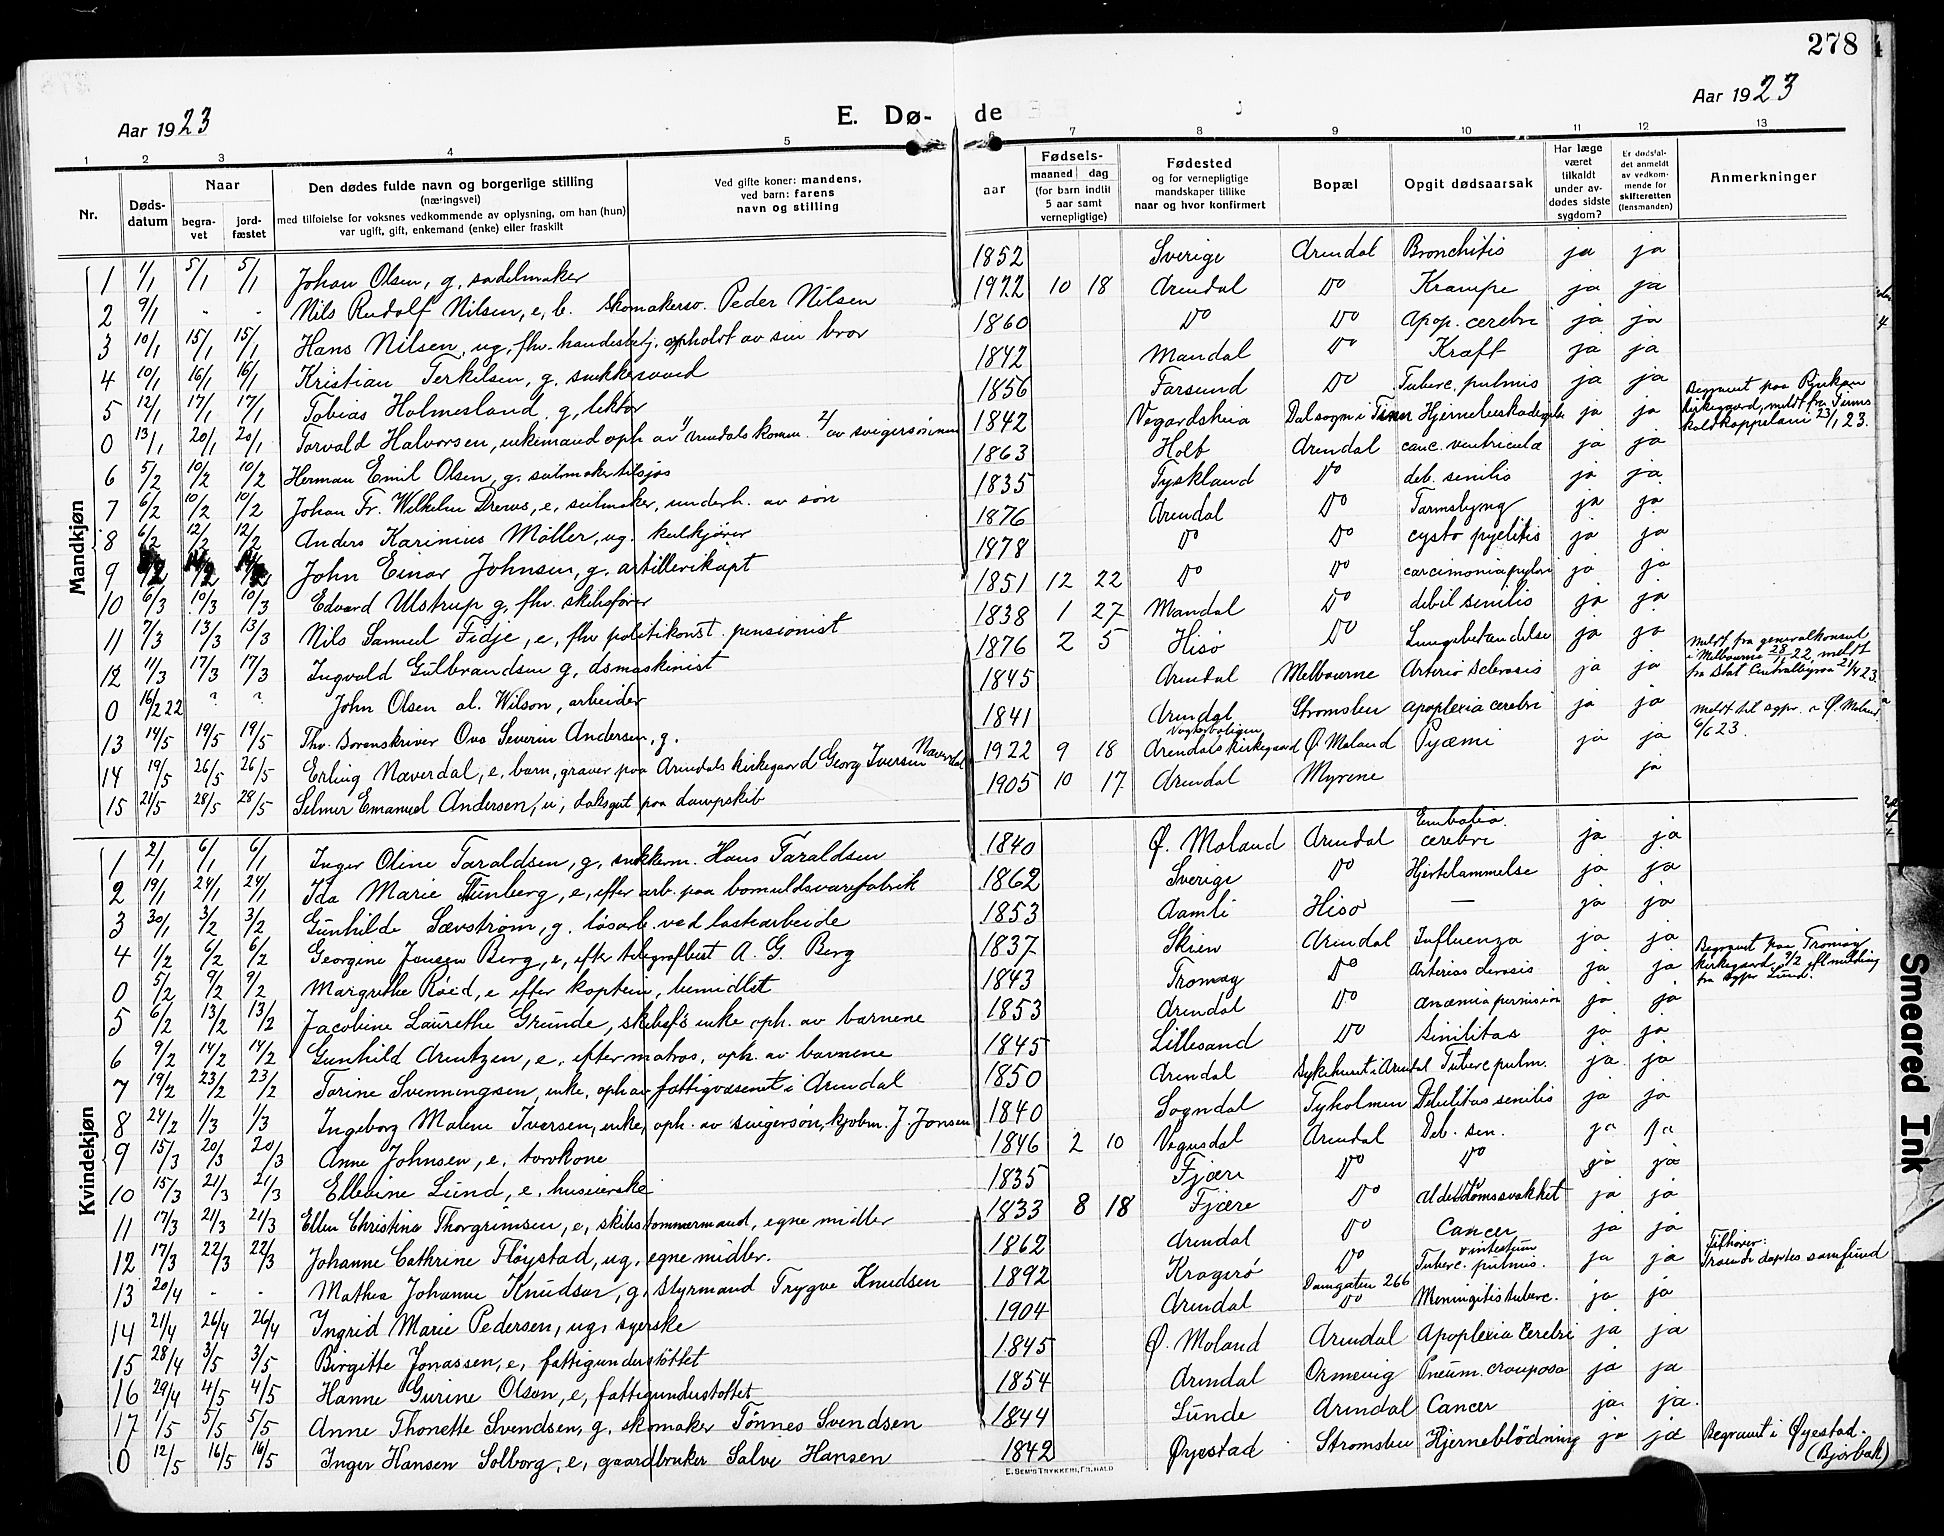 278
Aar 1923
E. Dø- de
Aar 1923
1 2 3 4 5 6 7 8 9 10 11 12 13
Nr.
Døds-
datum
Naar
begra-
vet
jord-
fæstet
Den dødes fulde navn og borgerlige stilling
(næringsvei)
med tilføielse for voksnes vedkommende av oplysning, om han (hun)
var ugift, gift, enkemand (enke) eller fraskilt
Ved gifte koner: mandens,
ved barn: farens
navn og stilling
aar
Fødsels-
maaned dag
(for barn indtil
5 aar samt
vernepligtige)
Fødested
og for vernepligtige
mandskaper tillike
naar og hvor konfirmert
Bopæl
Opgit dødsaarsak
Har læge
været
tilkaldt
under av-
dødes sidste
sygdom?
Er dødsfal-
det anmeldt
av vedkom-
mende for
skifteretten
(lensmanden)
Anmerkninger
Mandkjøn
1 1/1 5/1 5/1 Johan Olsen, g, sadelmaker 1852 Sverige Arendal Bronchitis ja ja
2 9/1 - - Nils Rudolf Nilsen, e, b. skomakersv. Peder Nilsen 1922 10 18 Arendal Do Krampe ja ja
3 10/1 15/1 15/1 Hans Nilsen, ug, fhv. opholdt av sin bror 1860 Do Do Apop. cerebri ja ja
4 10/1 16/1 16/1 Kristian Terkelsen, g. snekkersvend 1842 Mandal Do Kræft ja ja
5 12/1 17/1 17/1 Tobias Holmesland, g, lektor 1856 Farsund Do Tuberc. pulmis ja ja
0 13/1 20/1 20/1 Torvald Halvorsen, enkemand oph. av 1/ Arendals komm. 2/ av svigersønnen 1842 Vegardsheia Dal sogn i Tinn ja ja Begravet paa Rjukan
kirkegaard, meldt fra Tinns
23/1 23.
6 5/2 10/2 10/2 Herman Emil Olsen, g. seilmaker tilsjøs 1863 Holt Arendal canc. ventriculi ja ja
7 6/2 10/2 10/2 Johan Fr. Wilhelm Drews, e, seilmaker, underh. av søn 1835 Tyskland Do deb. senilis ja ja
8 6/2 12/2 12/2 Anders Karinius Møller, ug. kulkjører 1876 Arendal Do Tarmslyng ja ja
9 John Einar Johnsen, g. artillerikapt 1878 Do Do cysto pyelitis ja ja
10 6/3 10/3 10/3 Edvard Ulstrup g, fhv. skibsfører 1851 12 22 Do Do ja ja
11 7/3 13/3 13/3 Nils Samuel Fidje, e, fhv politikonst. pensionist 1838 1 27 Mandal Do debil senilis ja ja
12 11/3 17/3 17/3 Ingvald Gulbrandsen g, dsmaskinist 1876 2 5 Hisø Do Lungebetændelse ja ja
0 16/2 22 ? ? John Olsen al. Wilson, arbeider 1845 Arendal Melbourne Arterio Sclerosis ja ja Meldt fra generalkonsul
i Melbourne 22, meldt
fra Stat. Centralbyraa 21/4 23.
13 14/5 19/5 19/5 Thv. Sorenskriver Ove Severin Andersen, g. 1841 Arendal Strømsbu apoplexia cerebri ja ja meldt til sgpr. i Ø. Moland
6/6 23.
14 19/5 26/5 26/5 Erling Næverdal, e. barn, graver paa Arendals kirkegaard Georg Iversen Næverdal 1922 9 18 Vogterboligen
Arendals kirkegaard Ø Moland Pyæmi ja ja
15 21/5 28/5 28/5 Selmer Emanuel Andersen, u, daksgut paa dampskib 1905 10 17 Arendal Myrene ja
Kvindekjøn
1 2/1 6/1 6/1 Inger Oline Taraldsen, g, snekkerm. Hans Taraldsen 1840 Ø. Moland Arendal Embolia
cerebri ja ja
2 19/1 24/1 24/1 Ida Marie Tunberg, e, efter arb. paa bomuldsvarefabrik 1862 Sverige Do Hjertelammelse ja ja
3 30/1 3/2 3/2 Gunhilde Sævstrøm, g. løsarb. ved lastearbeide 1853 Aamli Hisø — ja ja
4 1/2 6/2 6/2 Georgine Jensen Berg, e, efter telegrafbest A. G. Berg 1837 Skien Arendal Influenza ja ja
0 5/2 9/2 9/2 Margrethe Røed, e efter kaptein, bemidlet 1843 Tromøy Do ja ja Begravet paa Tromøy
kirkegaard 9/2 efl melding
fra sgpr Lund.
5 6/2 13/2 13/2 Jacobine Laurethe Grunde, skibsf's enke oph. av barnene 1853 Arendal Do anæmia pernision ja ja
6 9/2 14/2 14/2 Gunhild Arentzen, e. efter matros, oph. av barnene 1845 Lillesand Do Sinilitas ja ja
7 19/2 23/2 23/2 Torine Svenningsen, enke, oph av fattigvæsenet i Arendal 1850 Arendal Sykehuset i Arendal Tuberc pulm. ja ja
8 24/2 1/3 1/3 Ingeborg Malene Iversen, enke, oph. av svigersøn, kjøbm. J. Jonsen 1840 Sogndal Tyholmen Debilitas senilis ja ja
9 15/3 20/3 20/3 Anne Johnsen, e. torvkone 1846 2 10 Vegusdal Arendal Deb. sen. ja ja
10 15/3 21/3 21/3 Ellevine Lund, e. huseierske 1835 Fjære Do Do ja ja
11 17/3 21/3 21/3 Ellen Christine Thorgrimsen, e, skibstømmermand, egne midler 1833 8 18 Fjære Do Alderdomssvakket ja ja
12 17/3 22/3 22/3 Johanne Cathrine Fløystad, ug, egne midler. 1862 Arendal Do Cancer ja ja
13 20/4 - - Mathea Johanne Knudsen, g. styrmand Trygve Knudsen 1892 Kragerø Do Tuberc. pulmis.
v intestum ja ja Tilhører:
Troende døptes samfund
14 21/4 26/4 26/4 Ingrid Marie Pedersen, ug, syerske 1904 Arendal Damgaten 266
Do Meningitis tuberc. ja ja
15 28/4 3/5 3/5 Birgitte Jonassen, e, fattigunderstöttet 1845 Ø. Moland Arendal Apoplexia Cerebri ja ja
16 29/4 4/5 4/5 Hanne Gurine Olsen, e, fattigunderstøttet 1854 Arendal Ormevig Pneum. crouposa ja ja
17 1/5 5/5 5/5 Anne Thonette Svendsen, g. skomaker Tönnes Svendsen 1844 Lunde Arendal Cancer ja ja.
0 12/5 16/5 16/5 Inger Hansen Solborg, e, gaardbruker Salve Hansen 1842 Øyestad Strømsbu Hjerneblödning ja ja Begravet i Øyestad.
(Bjorbæk)
E. SEM'S TRYKKERI, FR.HALD
Smeared Ink